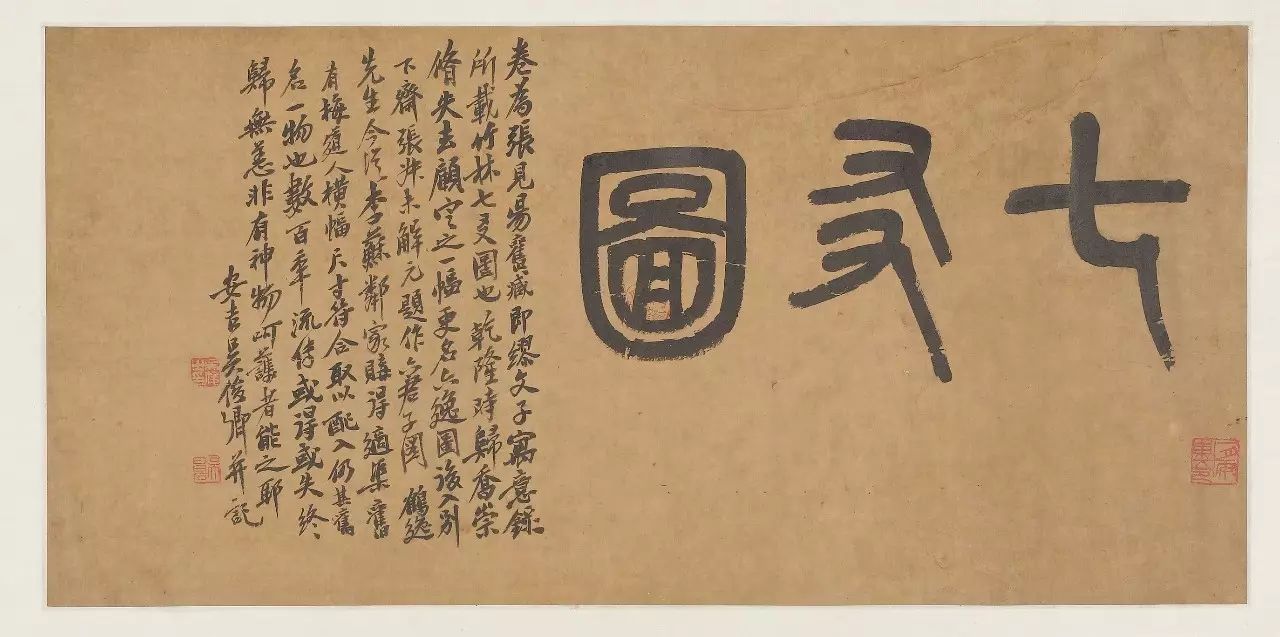 七友圖
卷為張見昜舊臧即繆文子寓意錄
所載竹林七友圖也乾隆時歸喬崇
脩失去顧定之一幅更名六逸圖後入別
下齋張尗未解元題作六君子圖 鶴逸
先生今從李蘇鄰家購得適集舊
有梅道人橫幅尺寸符合取以配入仍其舊
名一物也數百年流傳或得或失終
歸無恙非有神物呵護者能之耶
安吉吳俊卿并記